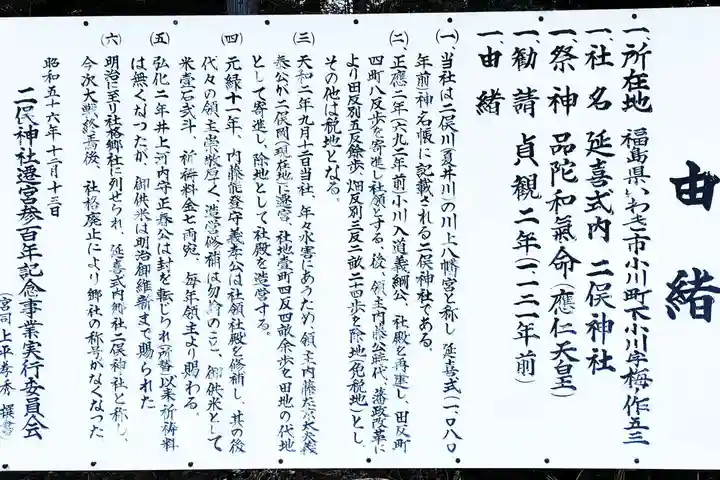 由緒
一、所在地 福島県いわき市小川町下小川字梅ノ作五三
一、社名 延喜式内 二俣神社
一、祭神 品陀和氣命(應仁天皇)
一、勧請 貞観二年(一、一三一年前)
一、由緒
(一)、当社は二俣川(夏井川)の川上八幡宮と称し 延喜式(一、〇八〇
年前)神名帳に記載される二俣神社である。
(二)、正應二年(六九二年前)小川入道義綱公、社殿を再建し、田反町
四町八反歩を寄進し社領とする。後、領主内藤 藩政改革に
より田反別五反餘歩、畑反別三反二畝二十四歩を除地(免税地)とし
その他は税地となる。
(三) 天和二年九月十二日当社、年々水害にあうため、領主内藤左京太夫義
泰公が二俣岡(現在地)に遷宮、社地壹町四反四畝余歩を田地の代地
として寄進し、除地として社殿を造営する。
(四) 元緑十一年、内藤能登守義孝公は社領社殿を修補し、其の後
代々の領主崇敬厚く、造営修補は勿論のこと、御供米として
米壹石貳斗 祈祷料金七両宛 毎年領主より賜わる。
(五) 弘化二年井上河内守正春公は封を転じられ(所替)以来祈祷料
は無くなったが、御供米は明治御維新まで賜られた
(六) 明治に至り社格郷社に列せられ、延喜式内郷社二俣神社と称し、
今次大戦終焉後 社格廃止により郷社の称号がなくなった
昭和五十六年十二月十三日
二俣神社遷宮参百年記念事業実行委員会
(宮司 上平孝秀 撰書)